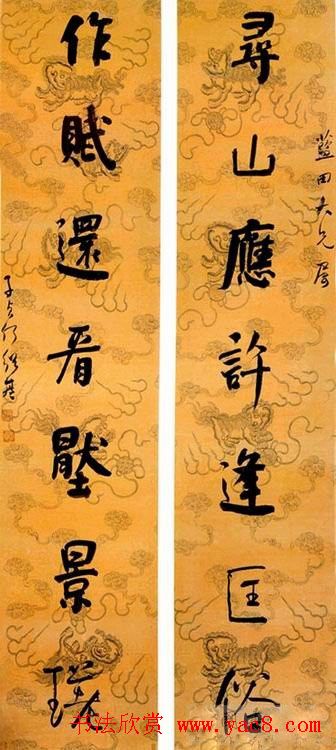 尋山應許逢匡俗
藍田大兄屬
作賦還看壓景瑳
子貞何紹基
书法欣赏 www.yac8.com